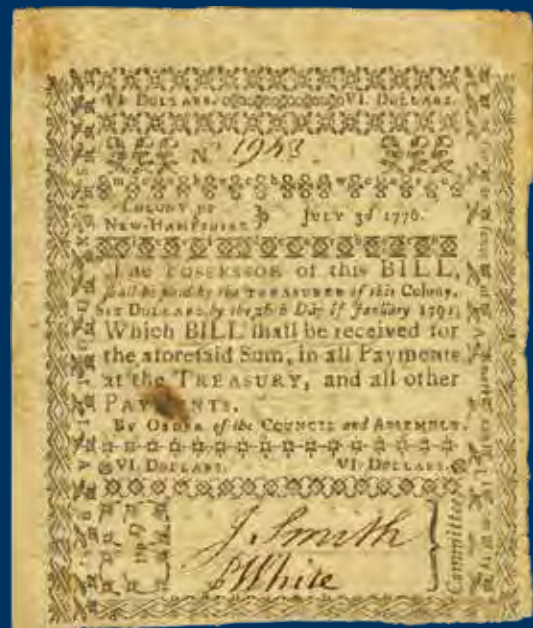 VI. DOLLARS. VI. DOLLARS.
No 1943.
COLONY OF
NEW-HAMPSHIRE } JULY 3d 1776.
The POSSESSOR of this BILL,
shall be paid by the TREASURER of this Colony,
SIX DOLLARS, by the Day January 1791;
Which BILL shall be received for
the aforesaid Sum, in all Payments
at the TREASURY, and all other
PAYMENTS.
BY ORDER of the COUNCIL and ASSEMBLY.
VI. DOLLARS. VI. DOLLARS.
J. Smith
P White
Committee